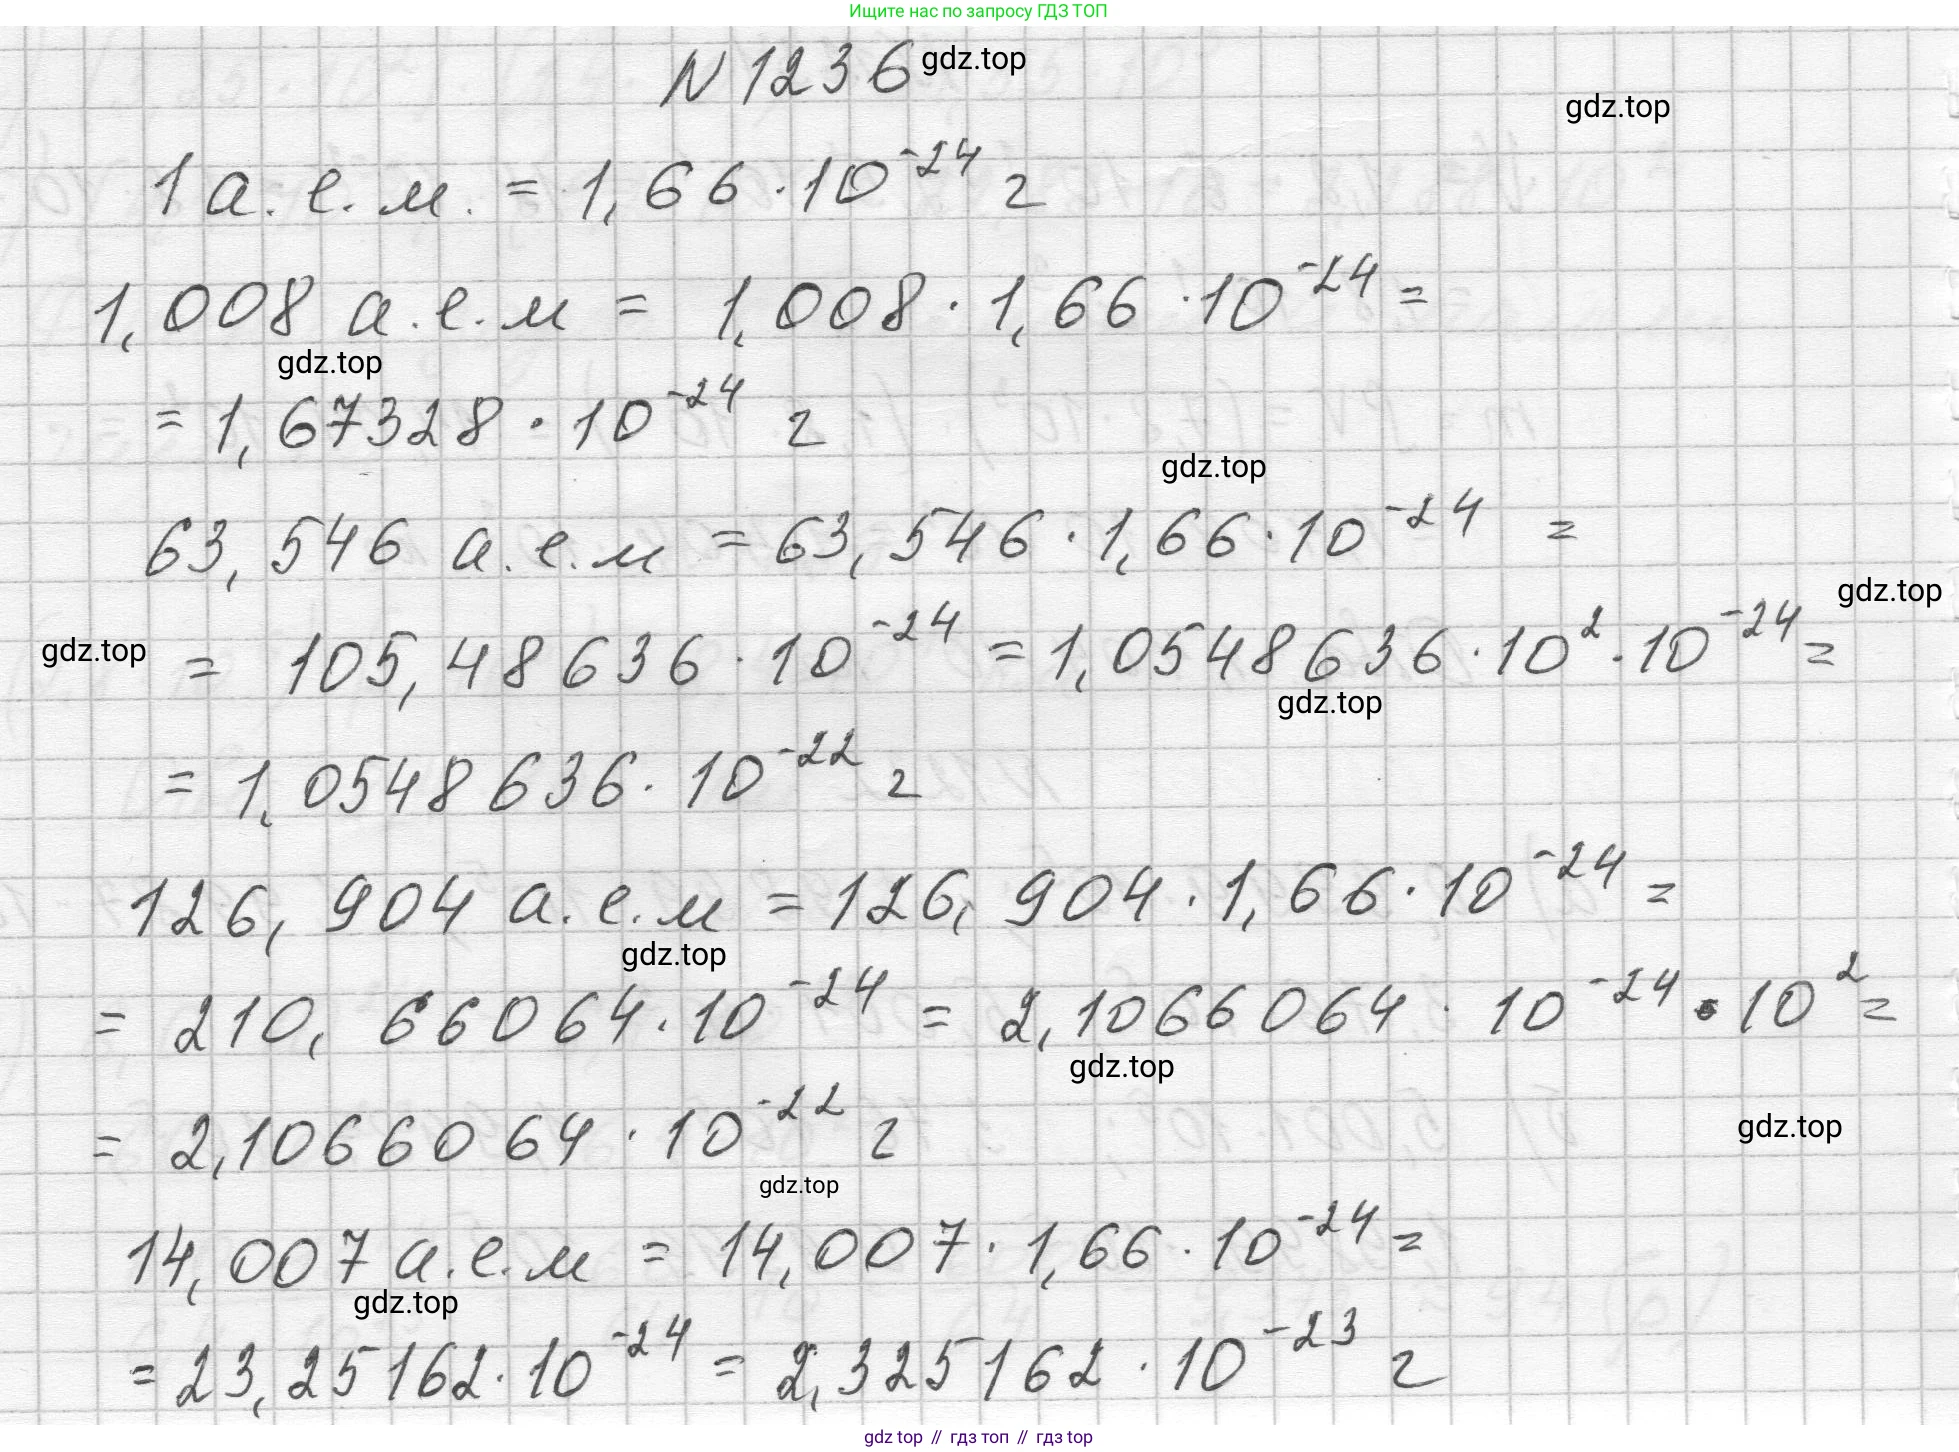 Ищите нас по запросу ГДЗ ТОП
N 1236 gdz.top
gdz.top
1 а. е. м. = 1,66 · 10⁻²⁴ г
1,008 а. е. м = 1,008 · 1,66 · 10⁻²⁴ =
gdz.top
= 1,67328 · 10⁻²⁴ г
gdz.top
63,546 а. е. м = 63,546 · 1,66 · 10⁻²⁴ =
gdz.top
gdz.top
= 105,48636 · 10⁻²⁴ = 1,0548636 · 10² · 10⁻²⁴ =
gdz.top
= 1,0548636 · 10⁻²² г
126,904 а. е. м = 126,904 · 1,66 · 10⁻²⁴ =
gdz.top
= 210,66064 · 10⁻²⁴ = 2,1066064 · 10⁻²⁴ · 10² =
gdz.top
= 2,1066064 · 10⁻²² г
gdz.top
gdz.top
14,007 а. е. м = 14,007 · 1,66 · 10⁻²⁴ =
gdz.top
= 23,25162 · 10⁻²⁴ = 2,325162 · 10⁻²³ г
gdz top // гдз топ // гдз top